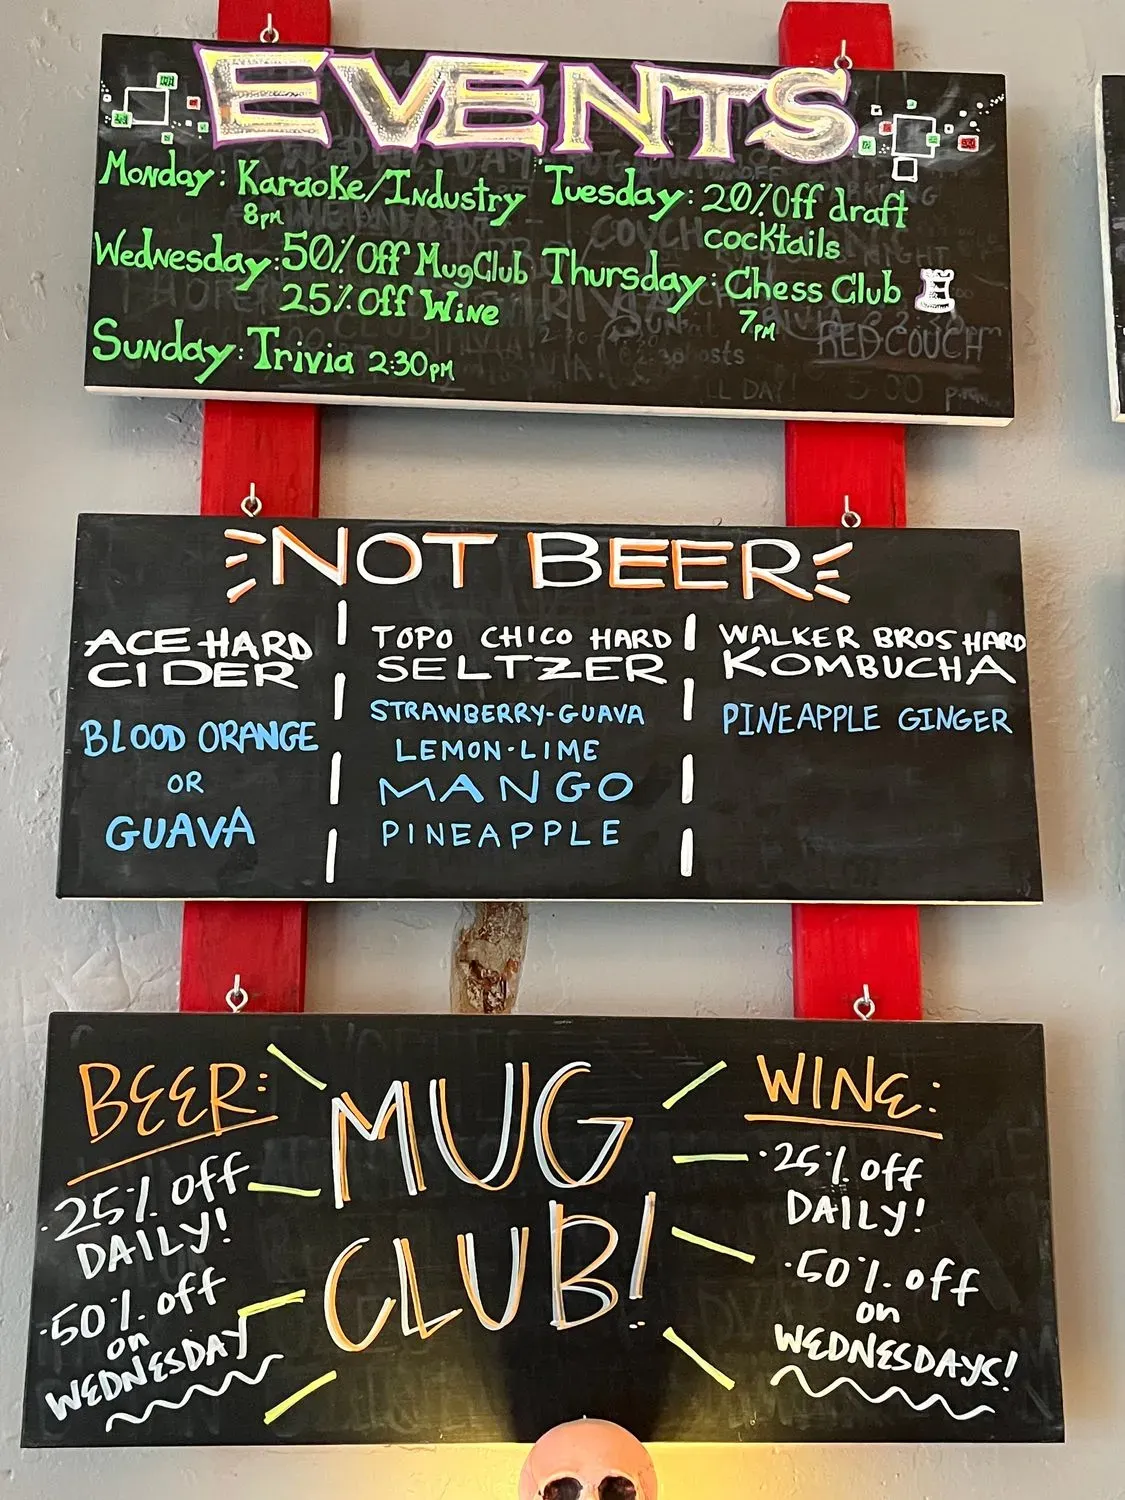 EVENTS
Monday: Karaoke/Industry
8pm
Tuesday: 20% Off draft
cocktails
Wednesday: 50% Off MugClub
25% Off Wine
Thursday: Chess Club
7pm
Sunday: Trivia 2:30pm
RED COUCH
NOT BEER
ACE HARD
CIDER
BLOOD ORANGE
OR
GUAVA
TOPO CHICO HARD
SELTZER
STRAWBERRY-GUAVA
LEMON-LIME
MANGO
PINEAPPLE
WALKER BROS HARD
KOMBUCHA
PINEAPPLE GINGER
BEER:
·25% off
DAILY!
·50% off
on
WEDNESDAY
MUG
CLUB!
WINE:
·25% off
DAILY!
·50% off
on
WEDNESDAYS!